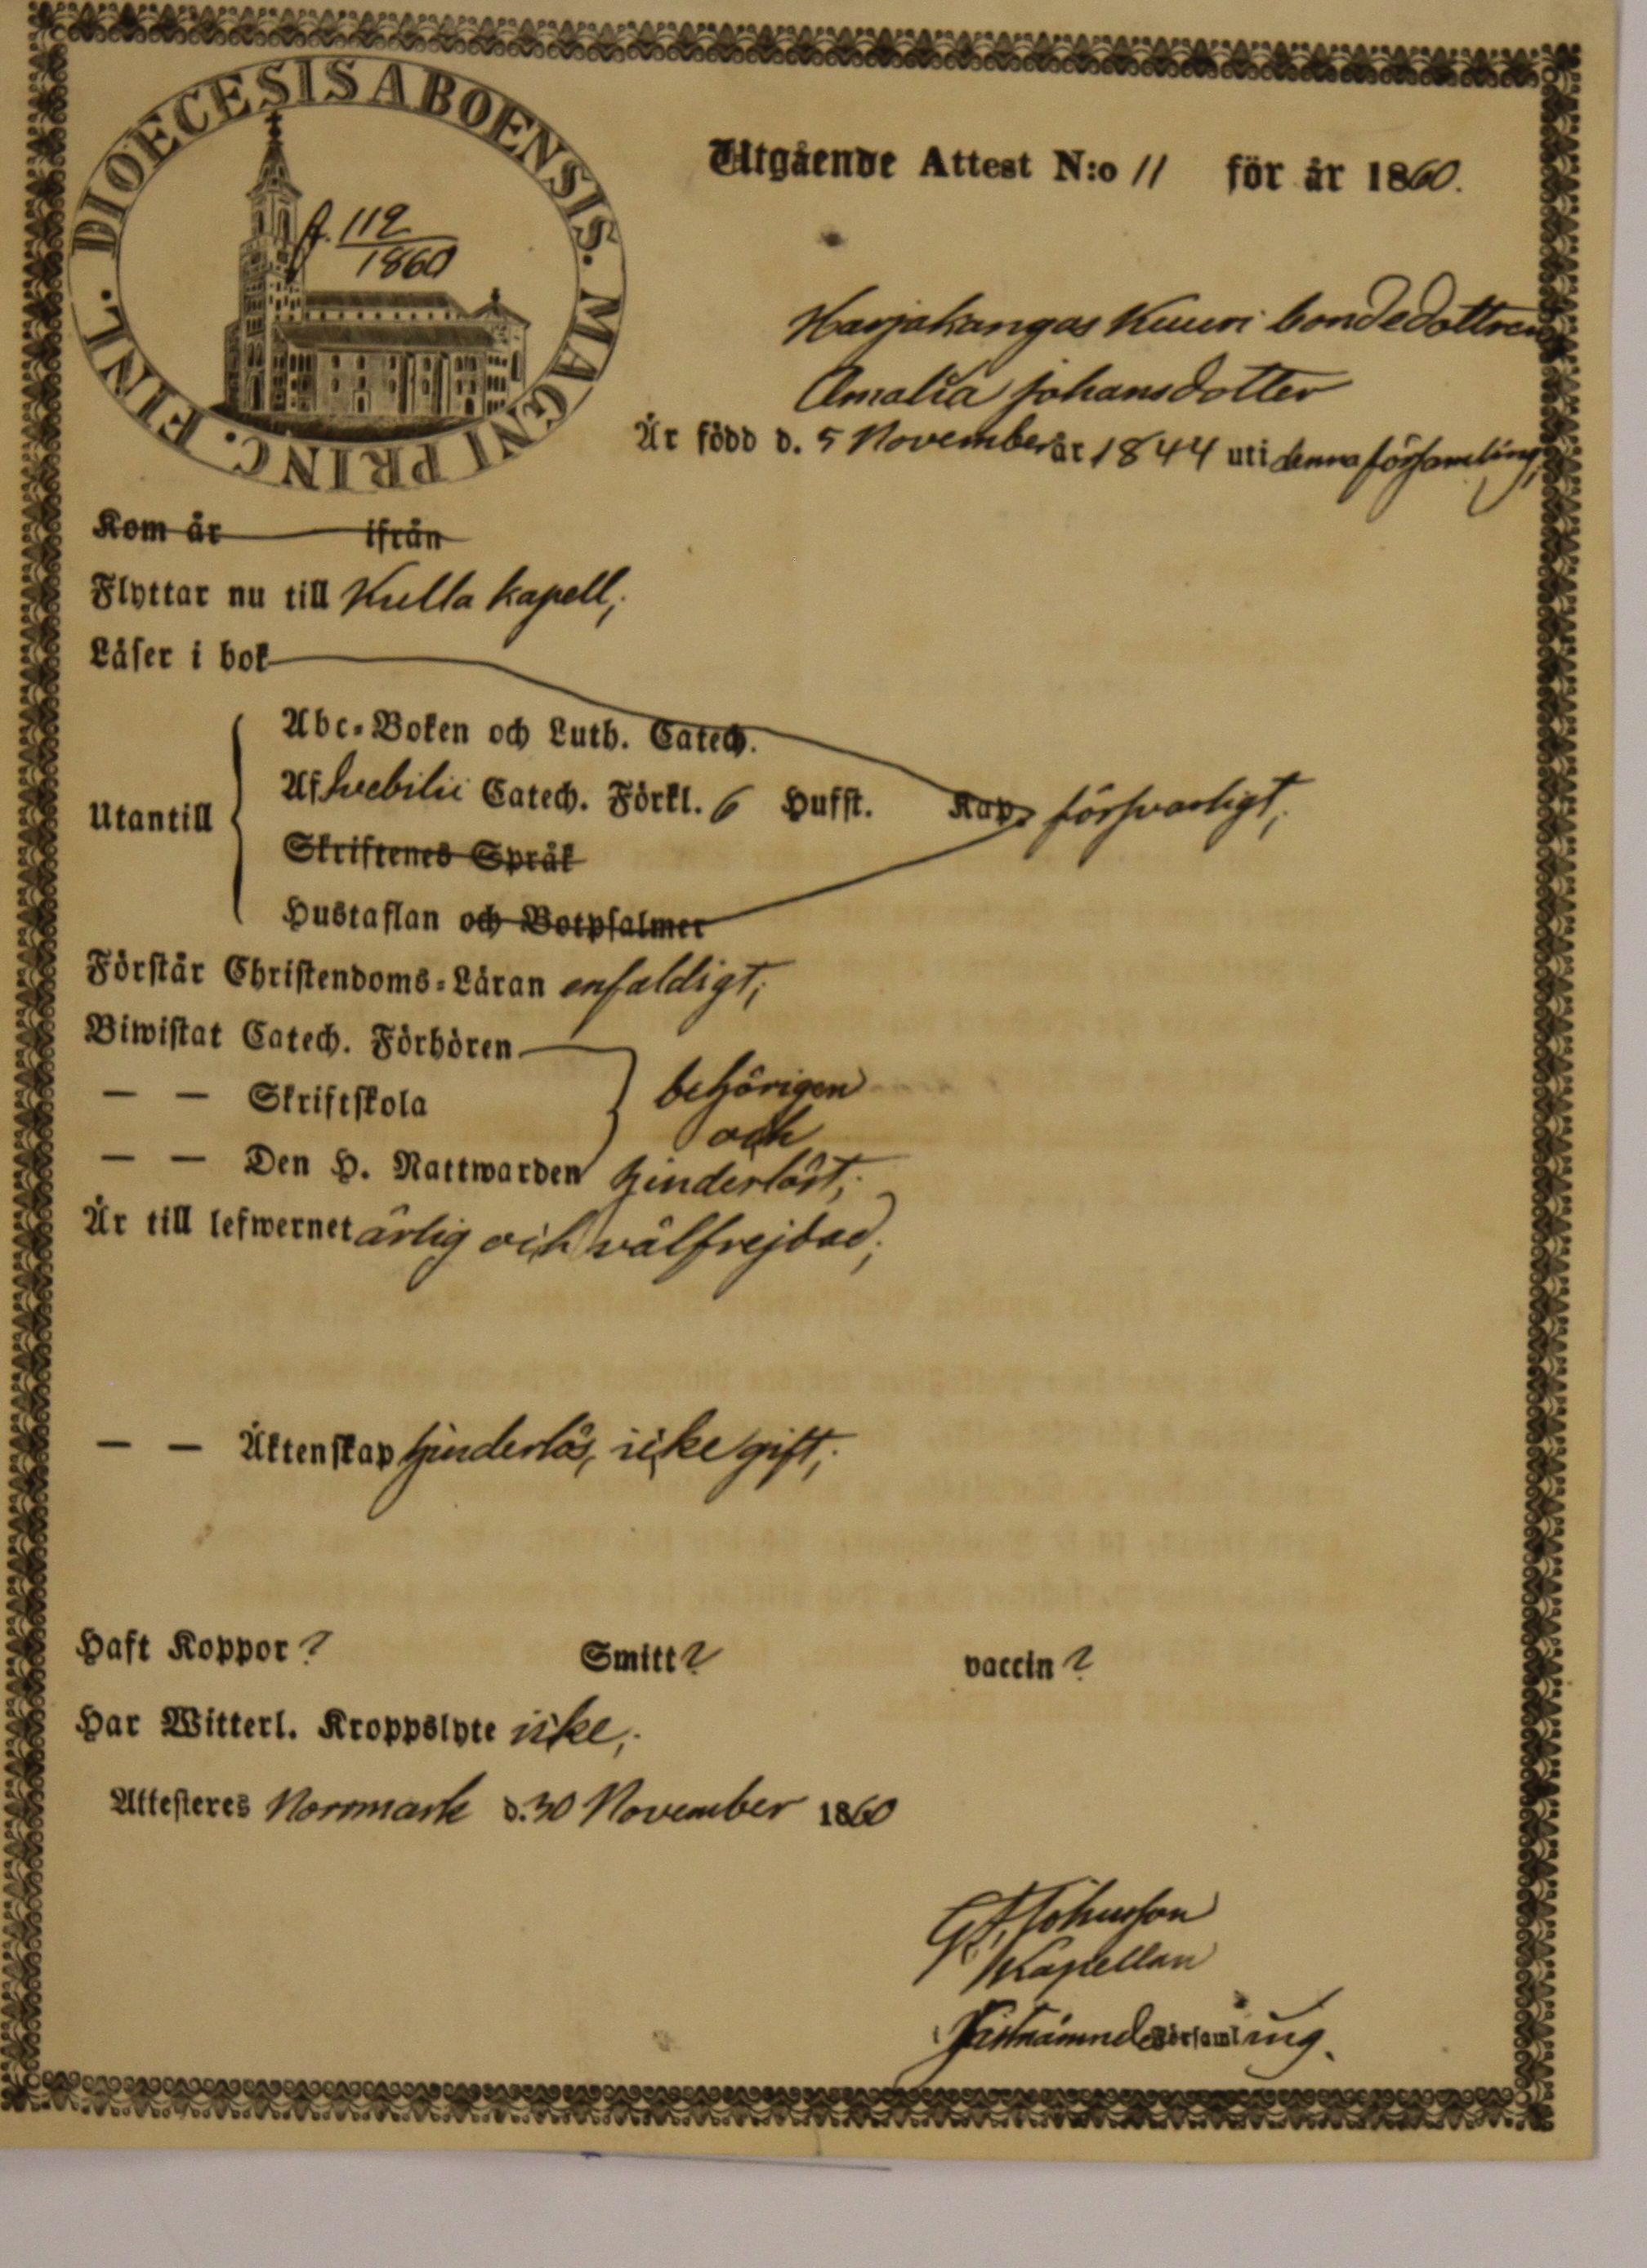 DIOECESIS ABOENSIS. MAGNI PRINC. FINL.
f. 112
1860
Utgående Attest N:o 11 för år 1860.
Harjakangas Kuuri bondedottren
Amalia Johansdotter
Är född d. 5 November år 1844 uti denna församling,
Kom år ifrån
Flyttar nu till Kulla kapell;
Läser i bok
Utantill
Abc-Boken och Luth. Catech.
Af Svebilii Catech. Förkl. 6 Hufst. Kap. försvarligt;
Skriftenes Språk
Hustaflan och Botpsalmer
Förstår Christendoms-Läran enfaldigt;
Biwistat Catech. Förhören
— — Skriftskola
behörigen
och
— — Den H. Nattwarden hinderlöst;
Är till lefwernet ärlig och välfrejdad;
— — Äktenskap hinderlös, icke gift;
Haft Koppor? Smitt? vaccin?
Har Witterl. Kroppslyte icke;
Attesteres Norrmark d. 30 November 1860
Johnsson
Kapellan
i sistnämnde Församling.